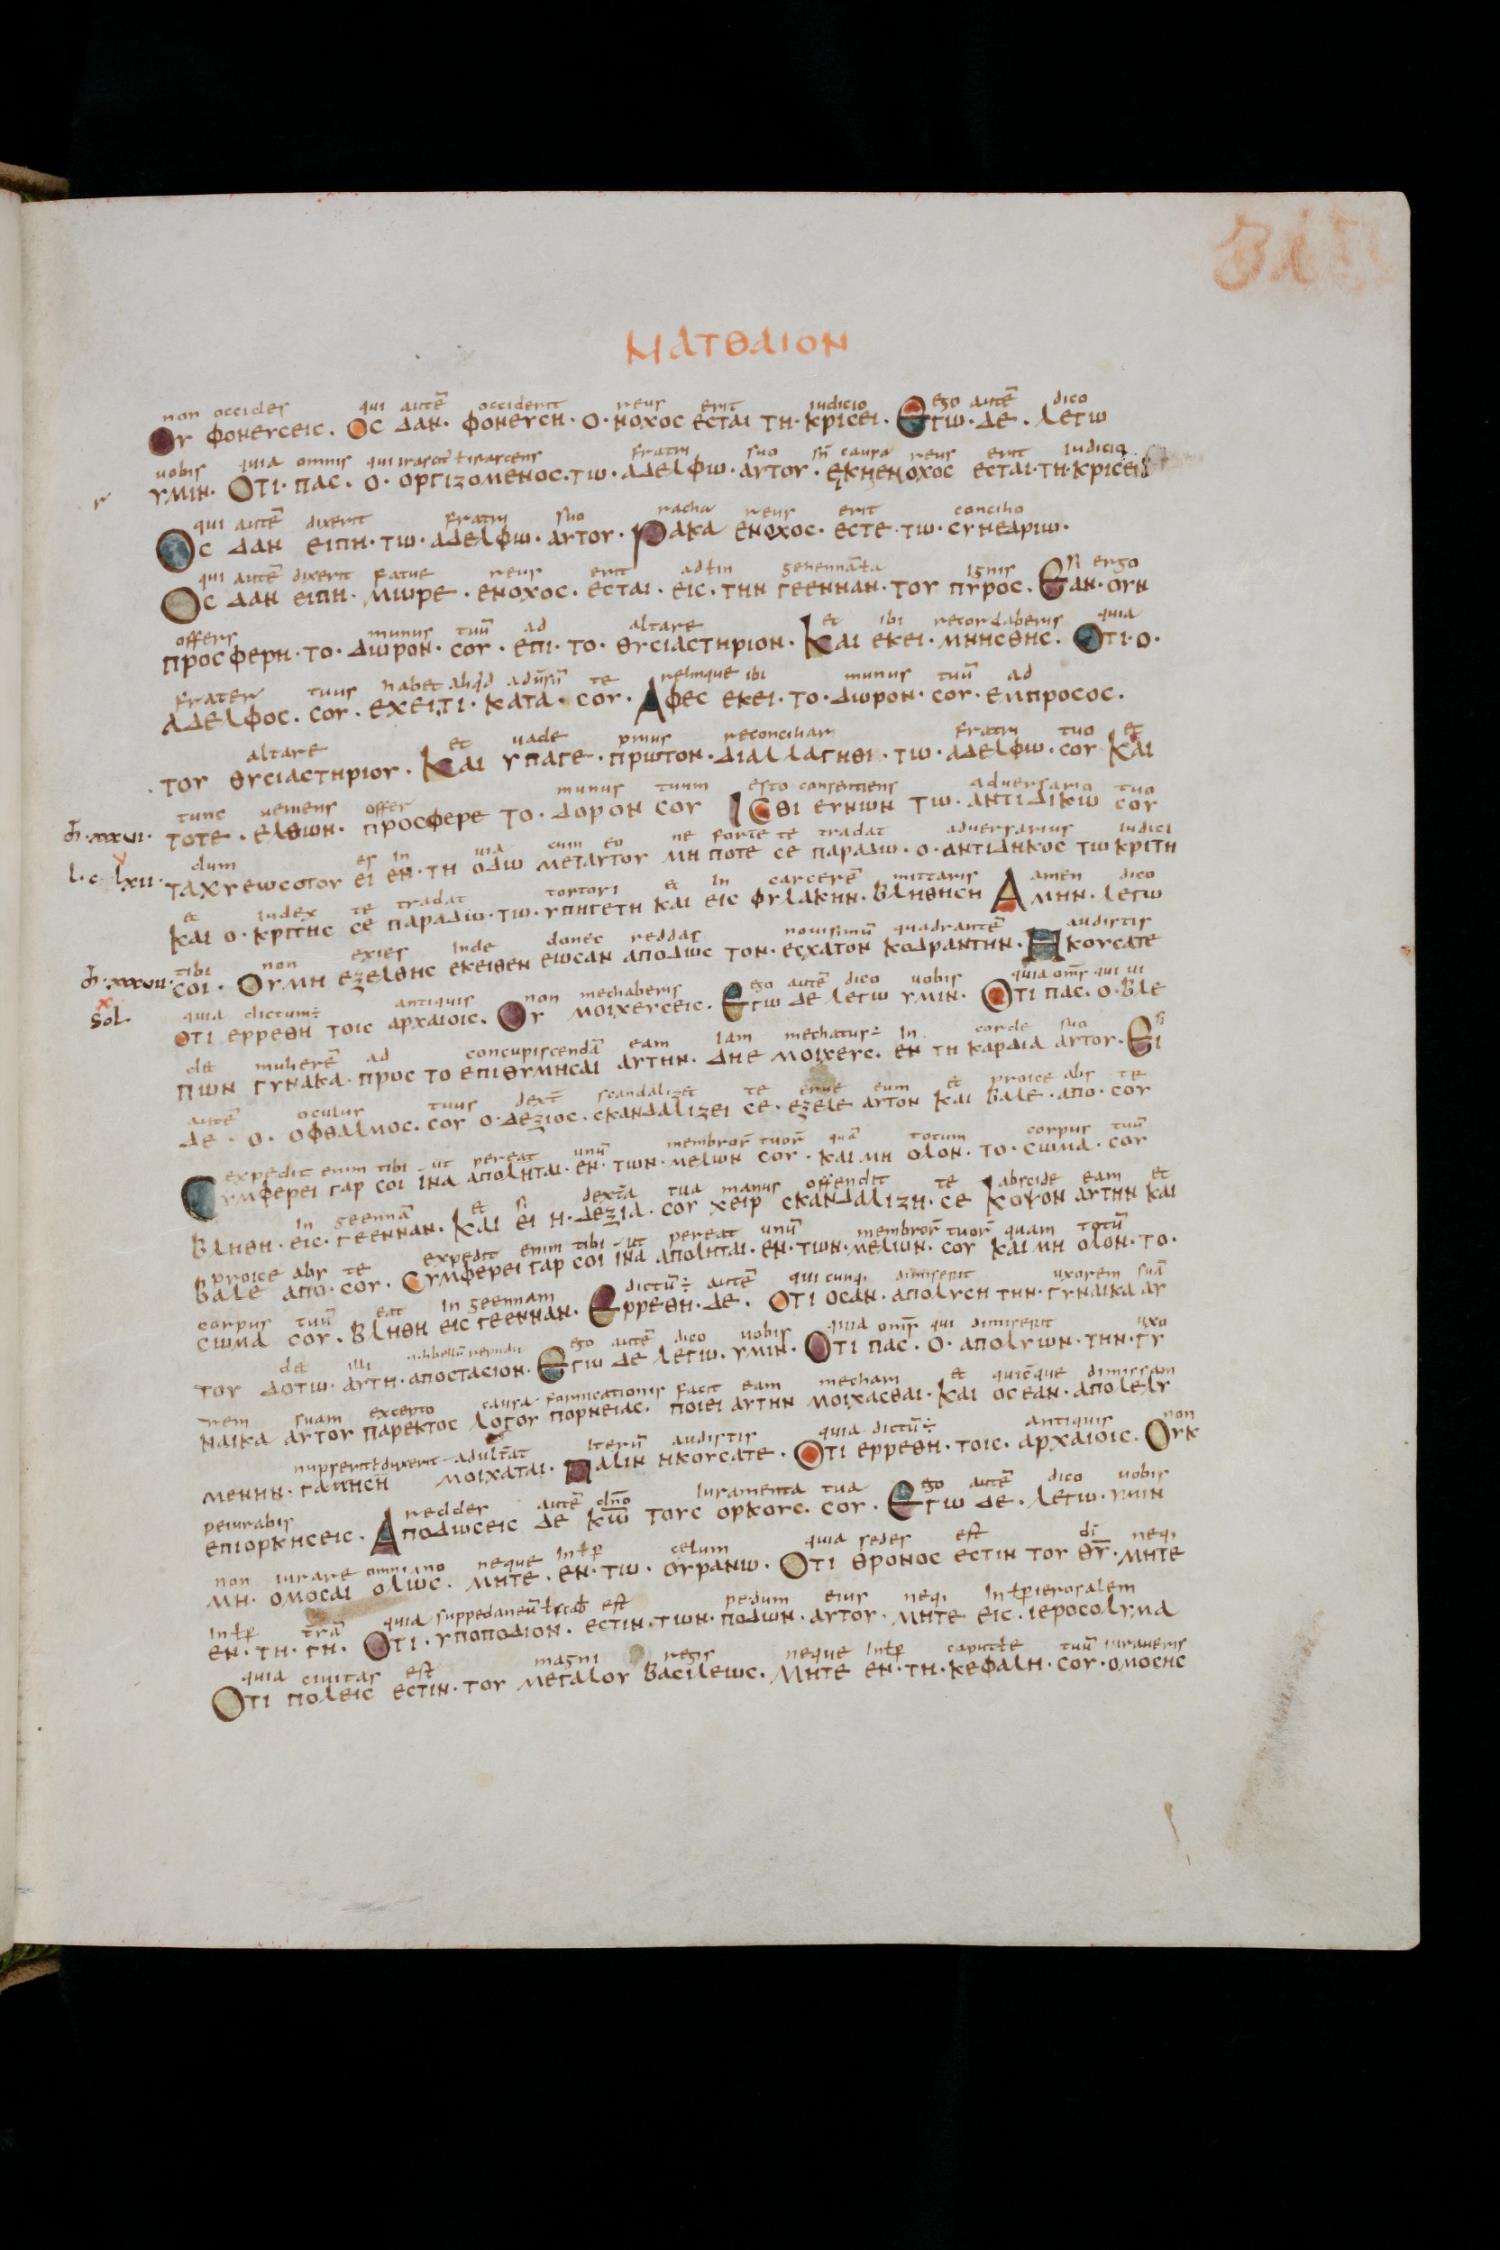 31
ΜΑΤΘΑΙΟΝ
non occides qui autē occiderit reus erit iudicio ego autē dico
ΟΥ ΦΟΝΕΥCΕΙC. ΟC ΔΑΝ. ΦΟΝΕΥCΗ. Ο. ΝΟΧΟC ΕCΤΑΙ ΤΗ. ΚΡΙCΕΙ. ΕΓΩ. ΔΕ. ΛΕΓΩ
uobis quia omnis fratri suo sñ causa reus erit iudicio
ΥΜΙΝ. ΟΤΙ. ΠΑC. Ο. ΟΡΓΙΖΟΜΕΝΟC. ΤΩ. ΑΔΕΛΦΩ. ΑΥΤΟΥ. ΕΚΗΕΝΟΧΟC ΕCΤΑΙ. ΤΗ. ΚΡΙCΕΙ
qui autē dixerit fratri suo racha reus erit concilio
ΟC ΔΑΝ ΕΙΠΗ. ΤΩ. ΑΔΕΛΦΩ. ΑΥΤΟΥ. ΡΑΚΑ ΕΝΟΧΟC. ΕCΤΕ. ΤΩ. CΥΝΕΔΡΙΩ.
qui autē dixerit fatue reus erit ad ł in gehennā ignis si ergo
ΟC ΔΑΝ ΕΙΠΗ. ΜΩΡΕ. ΕΝΟΧΟC. ΕCΤΑΙ. ΕΙC. ΤΗΝ ΓΕΕΝΝΑΝ. ΤΟΥ ΠΥΡΟC. ΕΑΝ. ΟΥΝ
offers munus tuū ad altare et ibi recordaberis quia
ΠΡΟCΦΕΡΗ. ΤΟ. ΔΩΡΟΝ. CΟΥ. ΕΠΙ. ΤΟ. ΘΥCΙΑCΤΗΡΙΟΝ. ΚΑΙ ΕΚΕΙ. ΜΝΗCΘΗC. ΟΤΙ. Ο.
frater tuus habet aliqd adūsū te relinque ibi munus tuū ad
ΑΔΕΛΦΟC. CΟΥ. ΕΧΕΙ.ΤΙ. ΚΑΤΑ. CΟΥ. ΑΦΕC ΕΚΕΙ. ΤΟ. ΔΩΡΟΝ. CΟΥ. ΕΜΠΡΟCΟC.
altare et uade prius reconciliari fratri tuo et
ΤΟΥ ΘΥCΙΑCΤΗΡΙΟΥ. ΚΑΙ ΥΠΑΓΕ. ΠΡΩΤΟΝ. ΔΙΑΛΛΑΓΗΘΙ. ΤΩ. ΑΔΕΛΦΩ. CΟΥ ΚΑΙ
tunc ueniens offer munus tuum esto consentiens aduersario tuo
ΤΟΤΕ. ΕΛΘΩΝ. ΠΡΟCΦΕΡΕ ΤΟ. ΔΟΡΟΝ CΟΥ ΙCΘΙ ΕΥΝΩΝ ΤΩ. ΑΝΤΙΔΙΚΩ CΟΥ
dum es in uia cum eo ne forte te tradat aduersarius iudici
ΤΑΧΥΕΩCΟΤΟΥ ΕΙ ΕΝ. ΤΗ ΟΔΩ ΜΕΤΑΥΤΟΥ ΜΗ ΠΟΤΕ CΕ ΠΑΡΑΔΩ. Ο. ΑΝΤΙΔΗΚΟC ΤΩ ΚΡΙΤΗ
et iudex te tradat tortori et in carcerē mittaris amen dico
ΚΑΙ Ο. ΚΡΙΤΗC CΕ ΠΑΡΑΔΩ. ΤΩ. ΥΠΗΓΕΤΗ ΚΑΙ ΕΙC ΦΥΛΑΚΗΝ. ΒΛΗΘΗCΗ ΑΜΗΝ. ΛΕΓΩ
tibi non exies inde donec reddas nouisimū quadrantē audistis
CΟΙ. ΟΥΜΗ ΕΞΕΛΘΗC ΕΚΕΙΘΕΝ ΕΩCΑΝ ΑΠΟΔΩC ΤΟΝ. ΕCΧΑΤΟΝ ΚΟΔΡΑΝΤΗΝ. ΗΚΟΥCΑΤΕ
quia dictum÷ antiquis non mechaberis ego autē dico uobis quia oms̄ qui ui
ΟΤΙ ΕΡΡΕΘΗ ΤΟΙC ΑΡΧΑΙΟΙC. ΟΥ ΜΟΙΧΕΥCΕΙC. ΕΓΩ ΔΕ ΛΕΓΩ ΥΜΙΝ. ΟΤΙ ΠΑC. Ο. ΒΛΕ
det mulierē ad concupiscendā eam iam mechatus÷ in corde suo si
ΠΩΝ ΓΥΝΑΚΑ. ΠΡΟC ΤΟ ΕΠΙΘΥΜΗCΑΙ ΑΥΤΗΝ. ΔΗΕ ΜΟΙΧΕΥC. ΕΝ ΤΗ ΚΑΡΔΙΑ ΑΥΤΟΥ. ΕΙ
autē oculus tuus dext̄ scandalizet te erue eum et proice abs te
ΔΕ. Ο. ΟΦΘΑΛΜΟC. CΟΥ Ο. ΔΕΞΙΟC. CΚΑΝΔΑΛΙΖΕΙ CΕ. ΕΞΕΛΕ ΑΥΤΟΝ ΚΑΙ ΒΑΛΕ. ΑΠΟ. CΟΥ
expedit enim tibi ut pereat unū membror̄ tuor̄ quā totum corpus tuū
CΥΜΦΕΡΕΙ ΓΑΡ CΟΙ ΙΝΑ ΑΠΟΛΗΤΑΙ. ΕΝ. ΤΩΝ. ΜΕΛΩΝ CΟΥ. ΚΑΙ ΜΗ ΟΛΟΝ. ΤΟ. CΩΜΑ. CΟΥ
in geennā et si dext̄a tua manus offendit te abscide eam et
ΒΛΗΘΗ. ΕΙC. ΓΕΕΝΝΑΝ. ΚΑΙ ΕΙ Η. ΔΕΞΙΑ. CΟΥ ΧΕΙΡ CΚΑΝΔΑΛΙΖΗ. CΕ ΚΟΨΟΝ ΑΥΤΗΝ ΚΑΙ
proice abs te expedit enim tibi ut pereat unū membror̄ tuor̄ quam totū
ΒΑΛΕ ΑΠΟ. CΟΥ. CΥΜΦΕΡΕΙ ΓΑΡ CΟΙ ΙΝΑ ΑΠΟΛΗΤΑΙ. ΕΝ. ΤΩΝ. ΜΕΛΩΝ. CΟΥ ΚΑΙ ΜΗ ΟΛΟΝ. ΤΟ.
corpus tuū eat in geennam dictū÷ autē qui cunq; dimiserit uxorem suā
CΩΜΑ CΟΥ. ΒΛΗΘΗ ΕΙC ΓΕΕΝΝΑΝ. ΕΡΡΕΘΗ. ΔΕ. ΟΤΙ ΟCΑΝ. ΑΠΟΛΥCΗ ΤΗΝ. ΓΥΝΑΙΚΑ ΑΥ
det illi ego autē dico uobis quia oms̄ qui dimiserit uxo
ΤΟΥ ΔΟΤΩ. ΑΥΤΗ. ΑΠΟCΤΑCΙΟΝ. ΕΓΩ ΔΕ ΛΕΓΩ. ΥΜΙΝ. ΟΤΙ ΠΑC. Ο. ΑΠΟΛΥΩΝ. ΤΗΝ. ΓΥ
rem suam excepto causa fornicationis facit eam mechari et quicūque dimissam
ΝΑΙΚΑ ΑΥΤΟΥ ΠΑΡΕΚΤΟC ΛΟΓΟΥ ΠΟΡΝΕΙΑC. ΠΟΙΕΙ ΑΥΤΗΝ ΜΟΙΧΑCΘΑΙ. ΚΑΙ ΟC ΕΑΝ. ΑΠΟΛΕΛΥ
nupserit ł duxerit adulterat iterū audistis quia dictū÷ antiquis non
ΜΕΝΗΝ. ΓΑΜΗCΗ ΜΟΙΧΑΤΑΙ. ΠΑΛΙΝ ΗΚΟΥCΑΤΕ. ΟΤΙ ΕΡΡΕΘΗ. ΤΟΙC. ΑΡΧΑΙΟΙC. ΟΥΚ
peiurabis reddes autē dn̄o iuramenta tua ego autē dico uobis
ΕΠΙΟΡΚΗCΕΙC. ΑΠΟΔΩCΕΙC ΔΕ Κ̅Ω̅ ΤΟΥC ΟΡΚΟΥC. CΟΥ. ΕΓΩ ΔΕ. ΛΕΓΩ. ΥΜΙΝ
non iurare omnino neque in ł p celum quia sedes est dī neq;
ΜΗ. ΟΜΟCΑΙ ΟΛΩC. ΜΗΤΕ. ΕΝ. ΤΩ. ΟΥΡΑΝΩ. ΟΤΙ ΘΡΟΝΟC ΕCΤΙΝ ΤΟΥ Θ̅Υ̅. ΜΗΤΕ
in ł p trā quia suppedaneū ł scab est pedum eius neq; in ł p ierosalem
ΕΝ. ΤΗ. ΓΗ. ΟΤΙ. ΥΠΟΠΟΔΙΟΝ. ΕCΤΙΝ. ΤΩΝ. ΠΟΔΩΝ. ΑΥΤΟΥ. ΜΗΤΕ ΕΙC. ΙΕΡΟCΟΛΥΜΑ
quia ciuitas est magni regis neque in ł p tuū iuraueris
ΟΤΙ ΠΟΛΕΙC ΕCΤΙΝ. ΤΟΥ ΜΕΓΑΛΟΥ ΒΑCΙΛΕΩC. ΜΗΤΕ ΕΝ. ΤΗ. ΚΕΦΑΛΗ. CΟΥ. ΟΜΟCΗC
m̄. xxxvi.
l. c. lxii.
m̄. xxxvii.
x
sol.